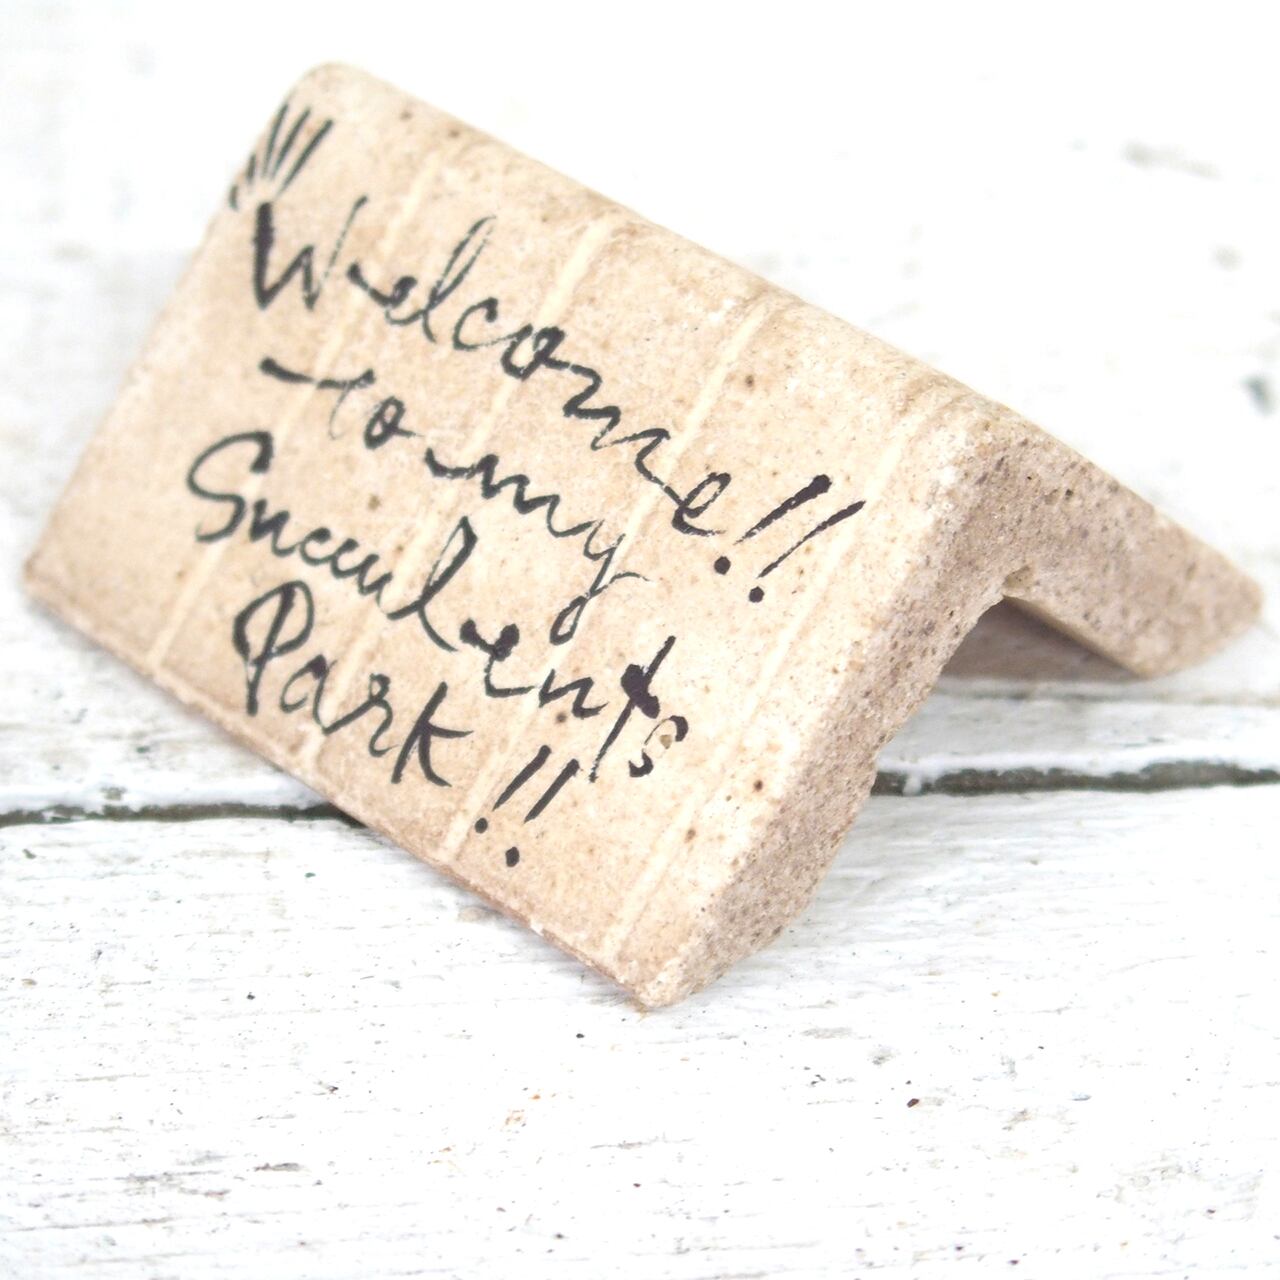 Welcome!!
to my
Succulents
Park!!